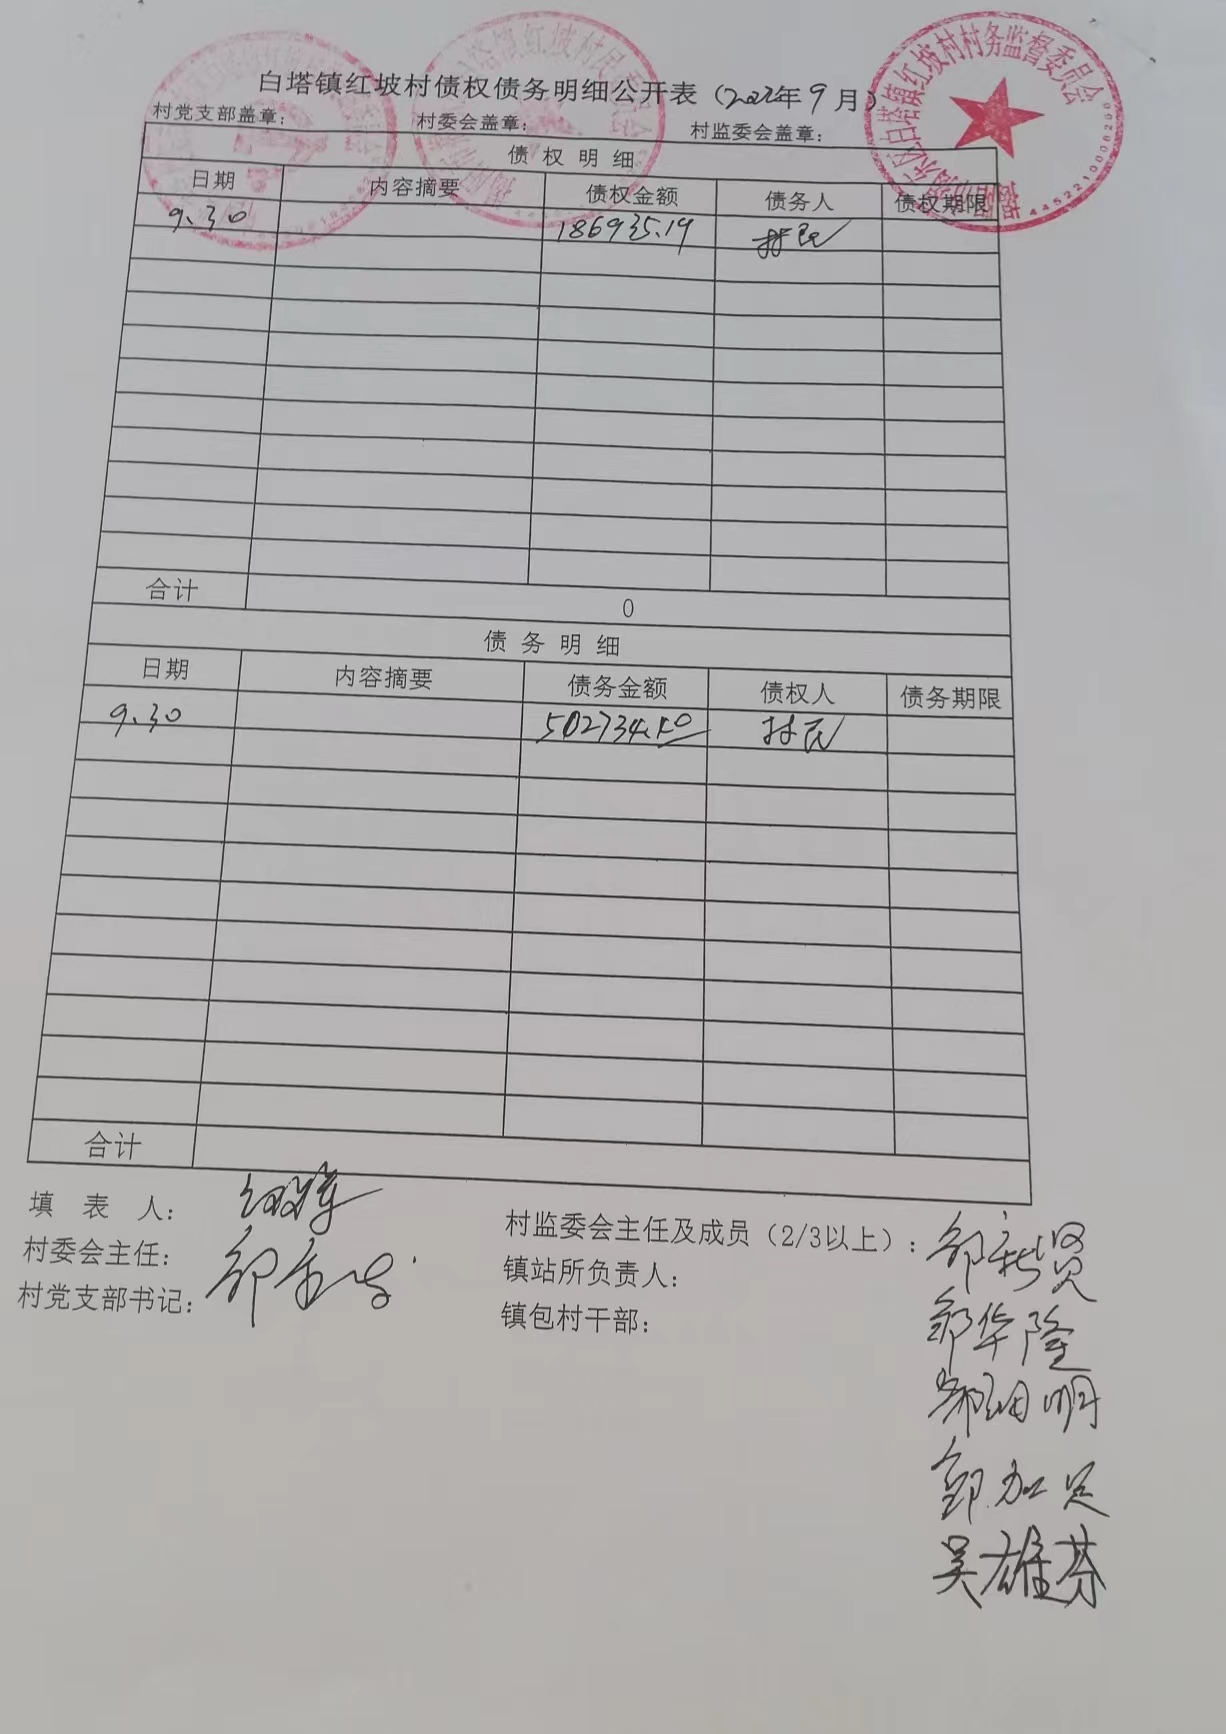 白塔镇红坡村债权债务明细公开表（2022年9月）
村党支部盖章： 村委会盖章： 村监委会盖章：
债权明细
日期 内容摘要 债权金额 债务人 债权期限
9.30 186935.19 村民
合计 0
债务明细
日期 内容摘要 债务金额 债权人 债务期限
9.30 502734.50 村民
合计
填表人：
村委会主任：
村党支部书记：
村监委会主任及成员（2/3以上）：
镇站所负责人：
镇包村干部：
邹新贤
邹华隆
邹加足
吴雄芬
白塔镇红坡村村务监督委员会